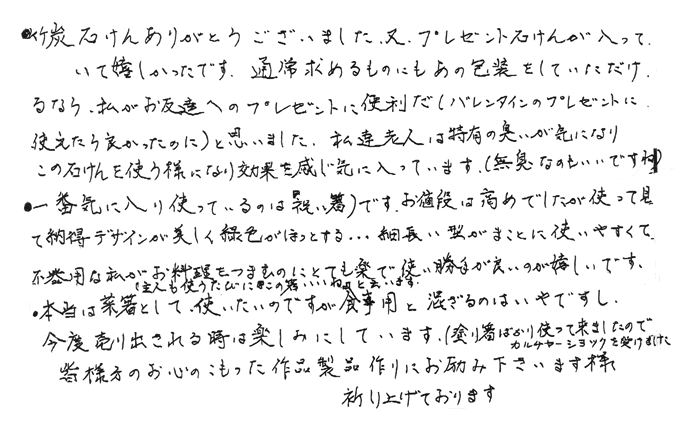 ●竹炭石けんありがとうございました、又、プレゼント石けんが入って、
いて嬉しかったです、通常求めるものにもあの包装をしていただけ、
るなら、私がお友達へのプレゼントに便利だ(バレンタインのプレゼントに
使えたら良かったのに)と思いました、私達老人は特有の臭いが気になり
この石けんを使う様になり効果を感じ気に入っています、(無臭なのもいいですね)
●一番気に入り使っているのは い箸)です、お値段は高めでしたが使って見
て納得デザインが美しく緑色がほっとする…細長い型がまことに使いやすくて、
不器用な私がお料理をつまものにとても楽で使い勝手が良いのが嬉しいです、
(主人も使うたびに この箸いいね と云います、
●本当は菜箸として、使いたいのですが食事用と混ざるのはいやですし、
今度売り出される時は楽しみにしています、(塗り箸ばかり使って来ましたので
カルチャーショックを受けました
皆様方のお心のこもった作品製品作りにお励み下さいます様、
祈り上げております